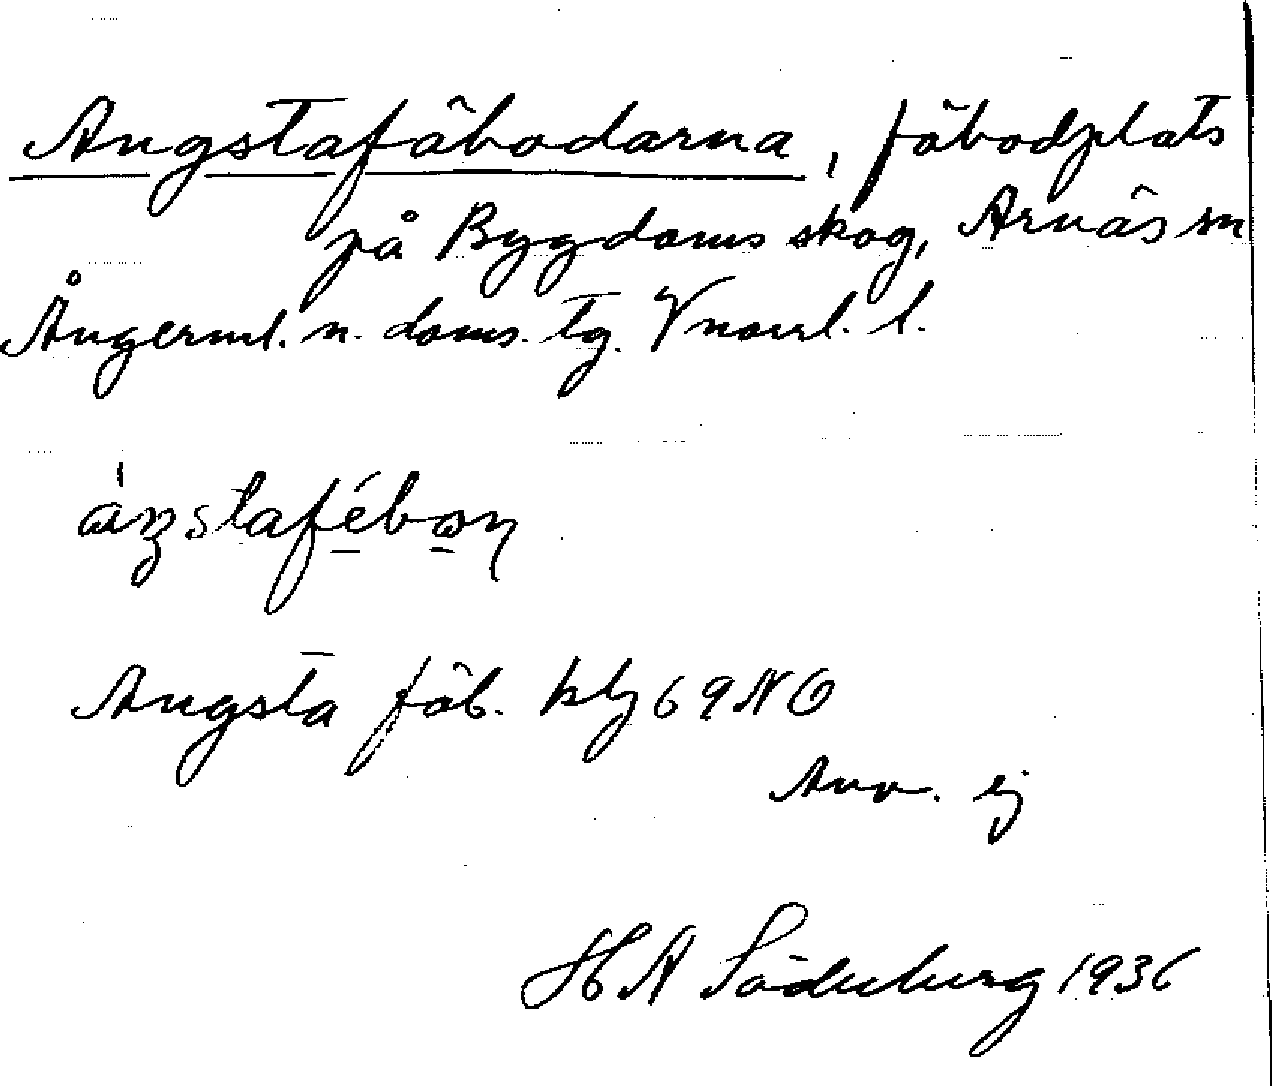 Angstafäbodarna, fäbodplats
på Bygdoms skog, Arnäs sn
Ångerml. n. doms. tg. Vnorrl. l.
áŋstafébon
Angsta fäb. blg 69 NO
Anv. ej
HA Söderberg 1936